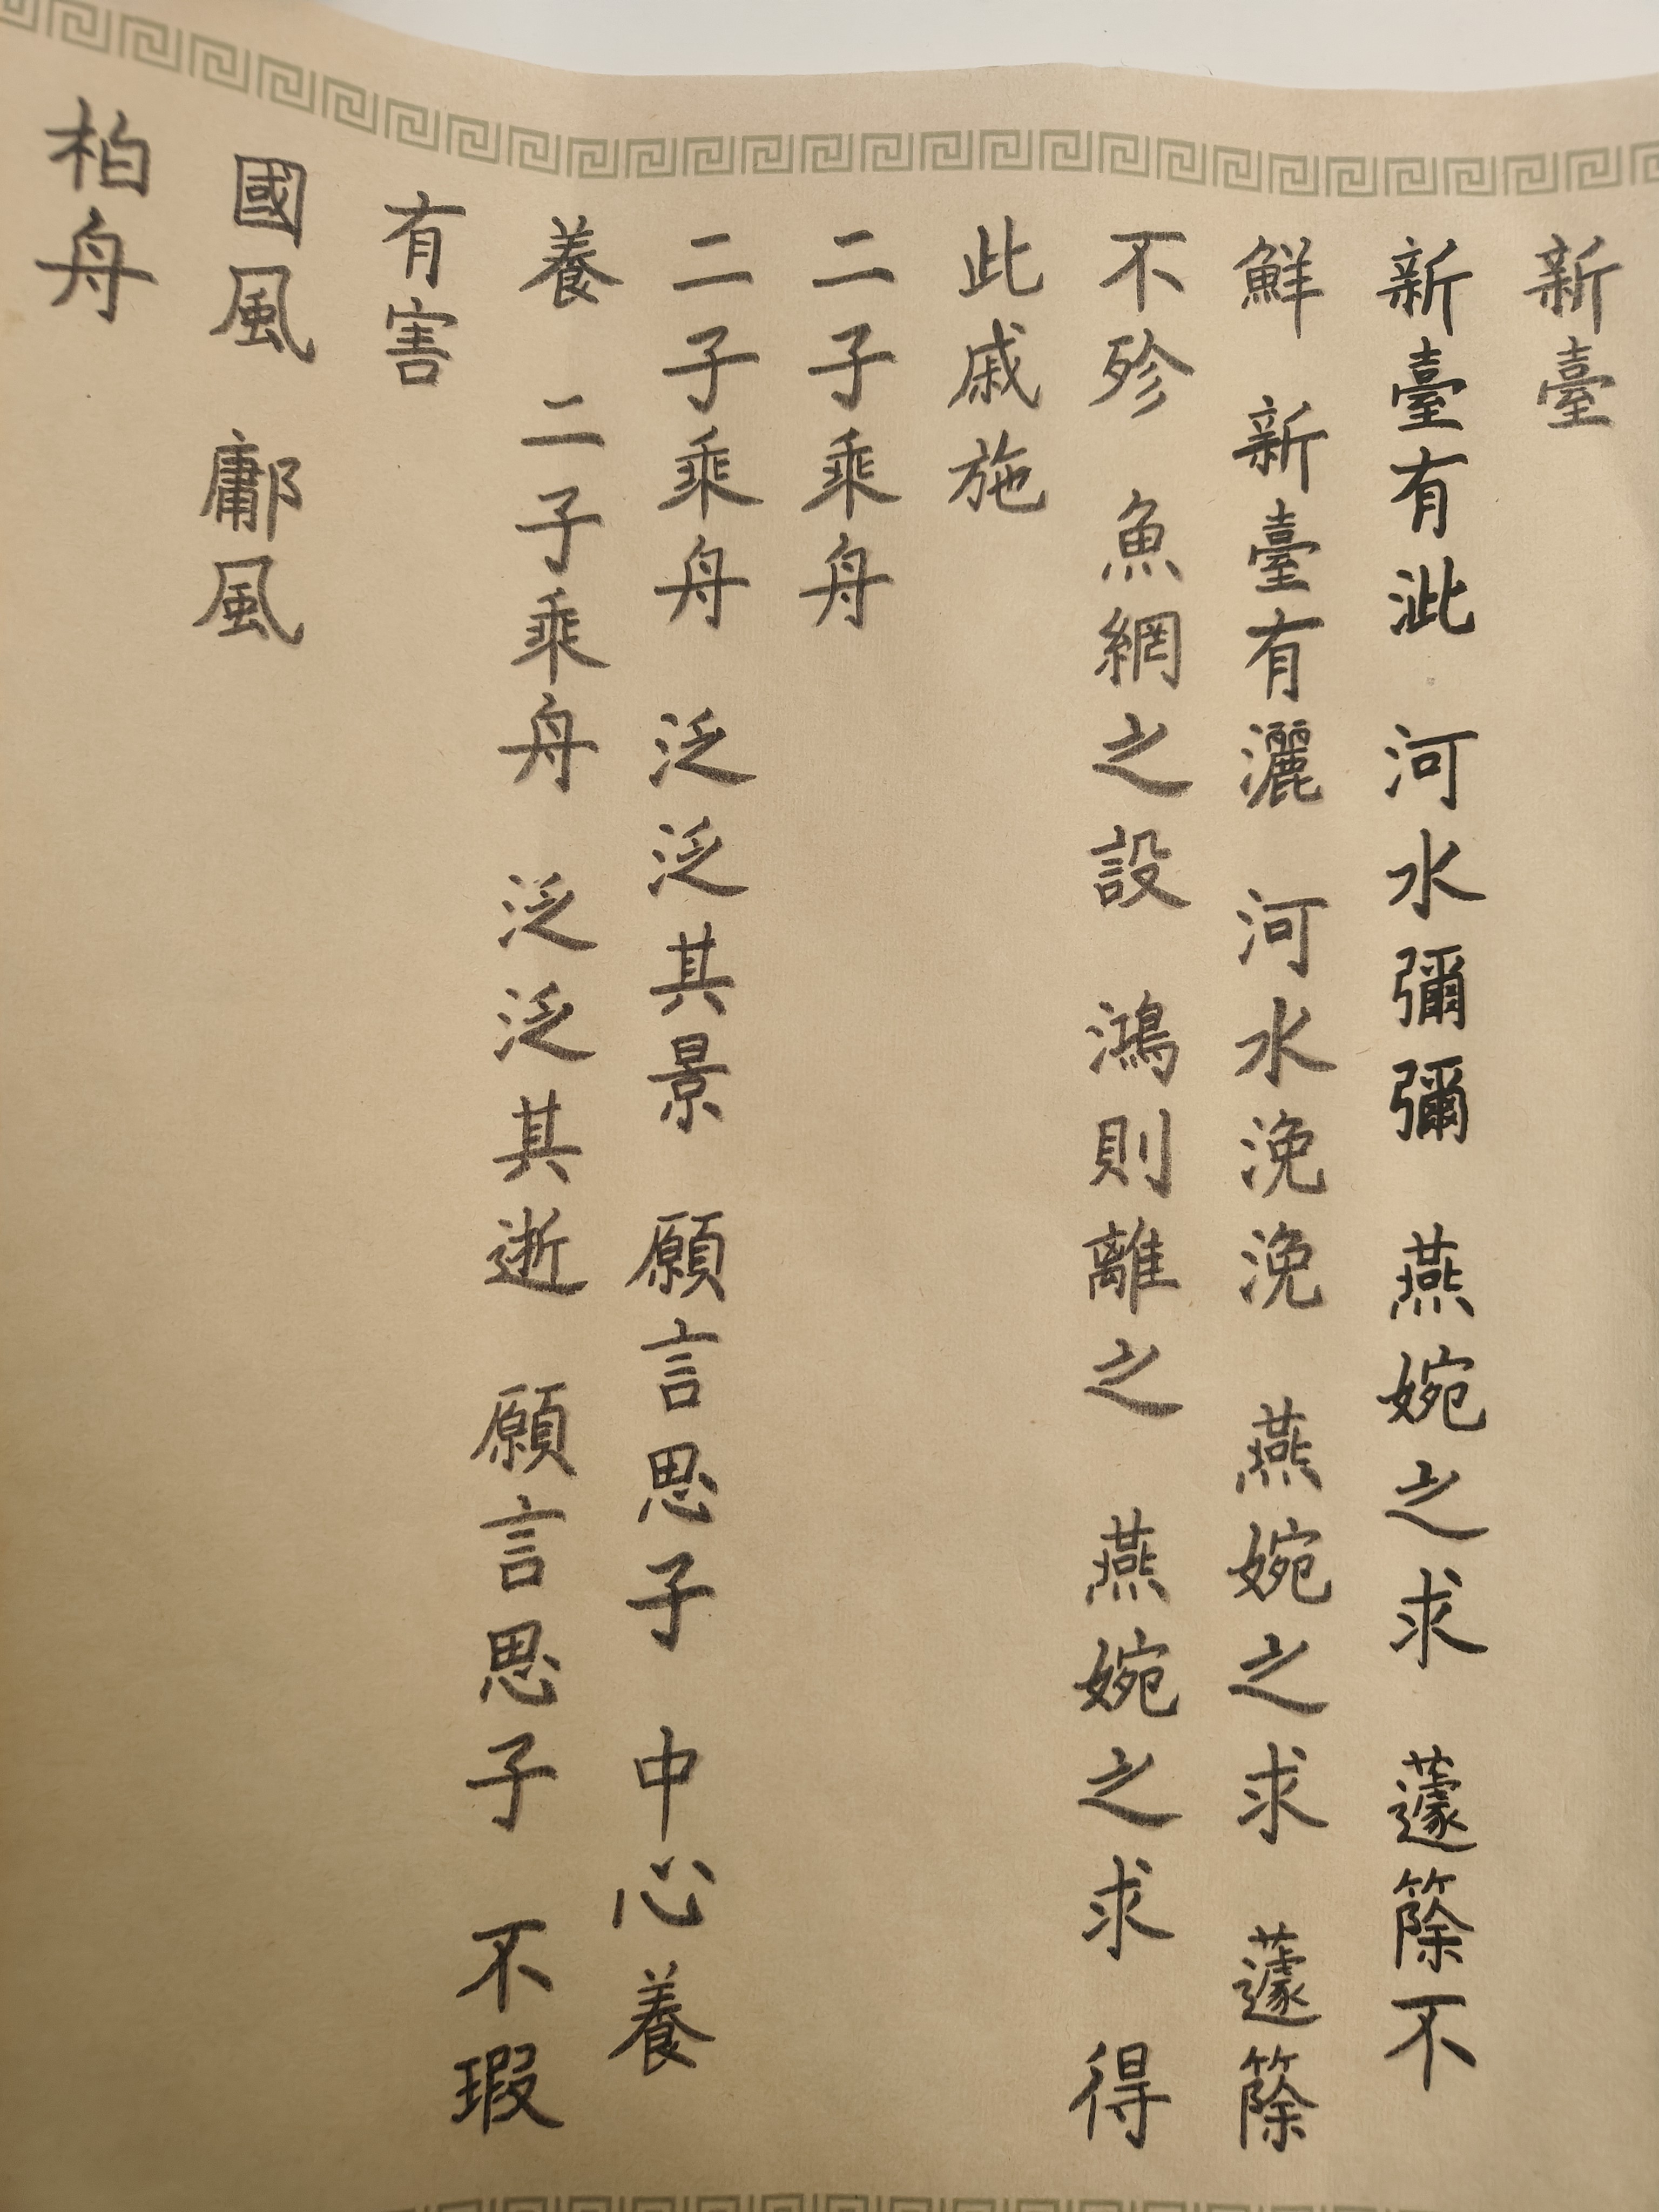 新臺
新臺有泚 河水彌彌 燕婉之求 蘧篨不
鮮 新臺有灑 河水浼浼 燕婉之求 蘧篨
不殄 魚網之設 鴻則離之 燕婉之求 得
此戚施
二子乘舟
二子乘舟 泛泛其景 願言思子 中心養
養 二子乘舟 泛泛其逝 願言思子 不瑕
有害
國風 鄘風
柏舟